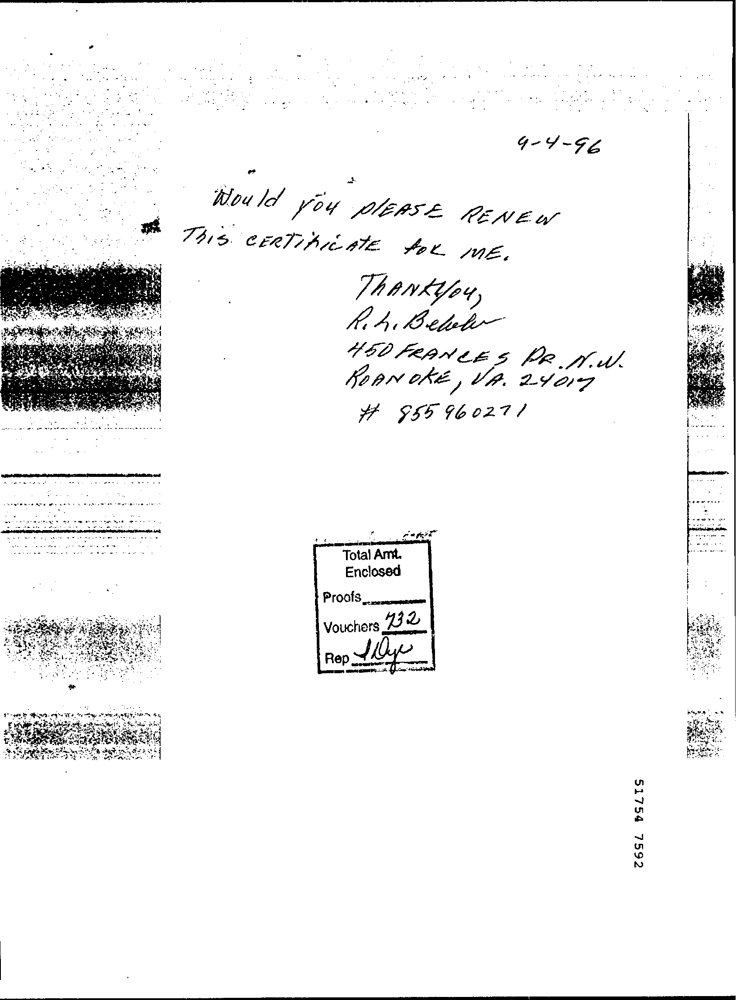 9-4-96
Would you PLEASE RENEW
This CERTIFICATE FOR ME.
THANKYOU,
R. L.
450 FRANCES DR. N.W.
ROANOKE, VA. 24017
# 855960271
Total Amt.
Enclosed
Proofs
Vouchers 732
Rep
51754 7592